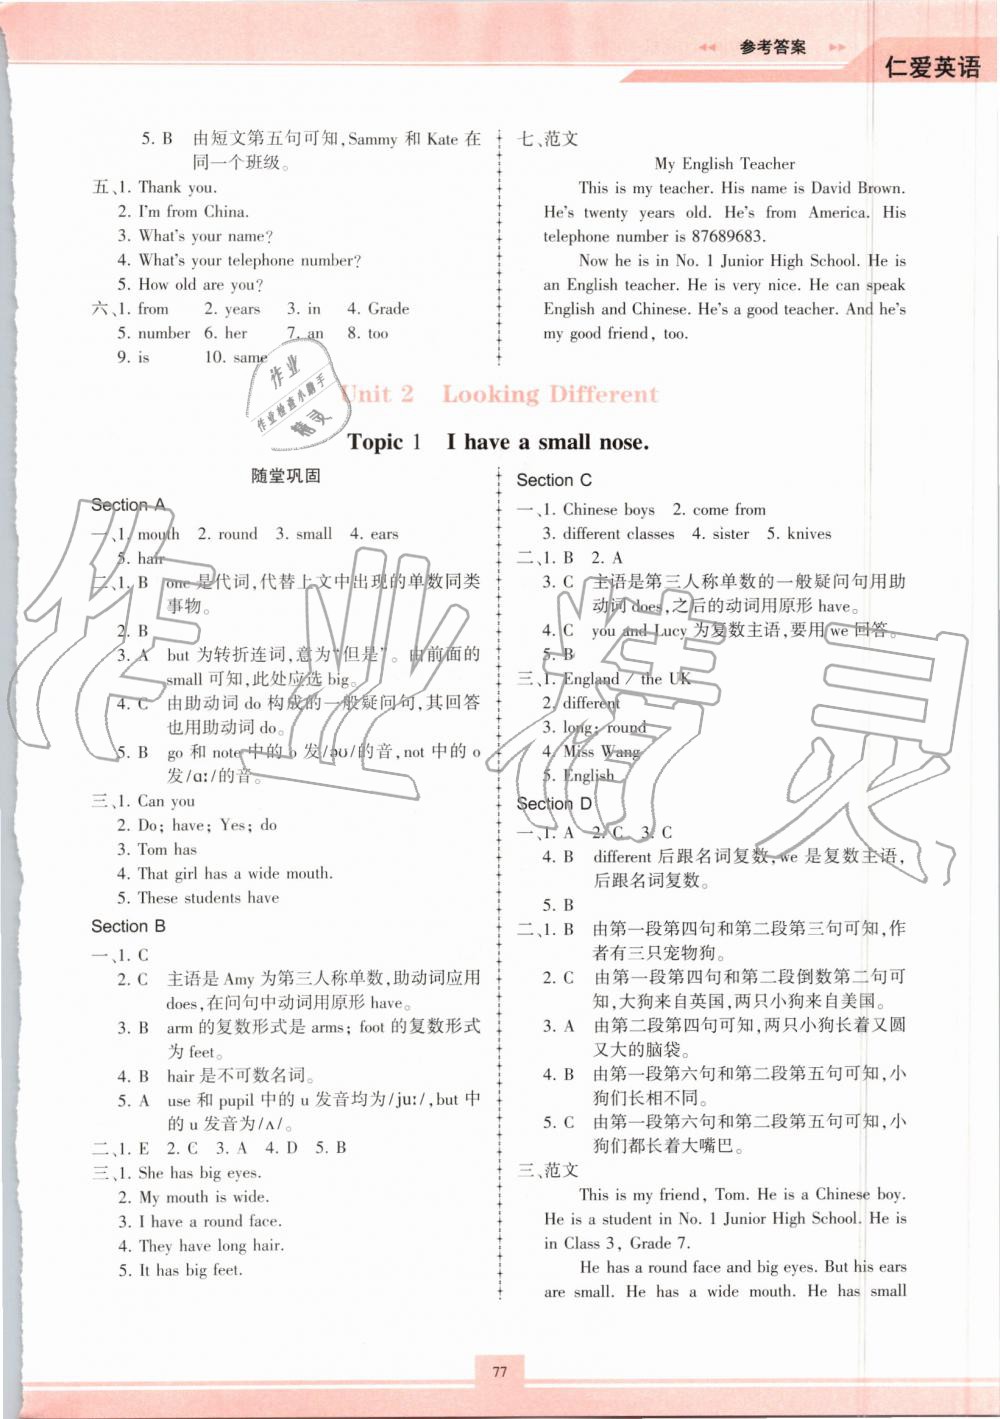 参考答案
仁爱英语
5. B 由短文第五句可知,Sammy 和 Kate 在
同一个班级。
五、1. Thank you.
2. I'm from China.
3. What's your name?
4. What's your telephone number?
5. How old are you?
六、1. from 2. years 3. in 4. Grade
5. number 6. her 7. an 8. too
9. is 10. same
七、范文
My English Teacher
This is my teacher. His name is David Brown.
He's twenty years old. He's from America. His
telephone number is 87689683.
Now he is in No. 1 Junior High School. He is
an English teacher. He is very nice. He can speak
English and Chinese. He's a good teacher. And he's
my good friend, too.
Unit 2 Looking Different
Topic 1 I have a small nose.
随堂巩固
Section A
一、1. mouth 2. round 3. small 4. ears
5. hair
二、1. B one 是代词,代替上文中出现的单数同类
事物。
2. B
3. A but 为转折连词,意为“但是”。由前面的
small 可知,此处应选 big。
4. C 由助动词 do 构成的一般疑问句,其回答
也用助动词 do。
5. B go 和 note 中的 o 发/əʊ/的音,not 中的 o
发/ɑː/的音。
三、1. Can you
2. Do; have; Yes; do
3. Tom has
4. That girl has a wide mouth.
5. These students have
Section B
一、1. C
2. C 主语是 Amy 为第三人称单数,助动词应用
does,在问句中动词用原形 have。
3. B arm 的复数形式是 arms; foot 的复数形式
为 feet。
4. B hair 是不可数名词。
5. A use 和 pupil 中的 u 发音均为/juː/,but 中
的 u 发音为/ʌ/。
二、1. E 2. C 3. A 4. D 5. B
三、1. She has big eyes.
2. My mouth is wide.
3. I have a round face.
4. They have long hair.
5. It has big feet.
Section C
一、1. Chinese boys 2. come from
3. different classes 4. sister 5. knives
二、1. B 2. A
3. C 主语是第三人称单数的一般疑问句用助
动词 does,之后的动词用原形 have。
4. C you and Lucy 为复数主语,要用 we 回答。
5. B
三、1. England / the UK
2. different
3. long; round
4. Miss Wang
5. English
Section D
一、1. A 2. C 3. C
4. B different 后跟名词复数,we 是复数主语,
后跟名词复数。
5. B
二、1. B 由第一段第四句和第二段第三句可知,作
者有三只宠物狗。
2. C 由第一段第四句和第二段倒数第二句可
知,大狗来自英国,两只小狗来自美国。
3. A 由第二段第四句可知,两只小狗长着又圆
又大的脑袋。
4. B 由第一段第六句和第二段第五句可知,小
狗们长相不同。
5. C 由第一段第六句和第二段第五句可知,小
狗们都长着大嘴巴。
三、范文
This is my friend, Tom. He is a Chinese boy.
He is a student in No. 1 Junior High School. He is
in Class 3, Grade 7.
He has a round face and big eyes. But his ears
are small. He has a wide mouth. He has small
77
作业
作业检查小助手
精灵
作业精灵